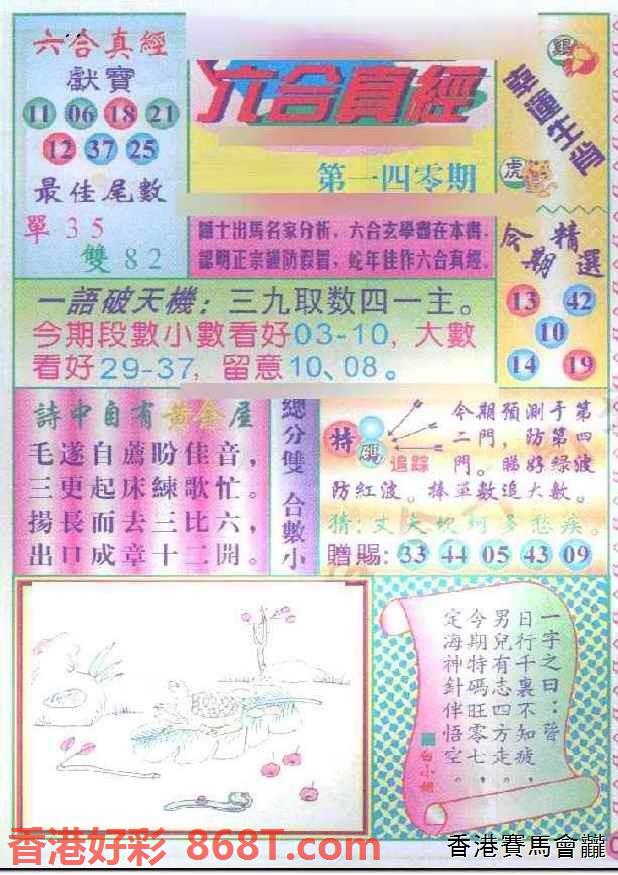 六合真經
獻寶
11 06 18 21
12 37 25
最佳尾數
單 3 5
雙 8 2
六合真經
第一四零期
雞
虎
今期精選
13 42
10
14 19
六合玄學盡在本書,
認明正宗謹防假冒,蛇年佳作六合真經。
一語破天機:三九取数四一主。
今期段數小數看好03-10,大數
看好29-37,留意10、08。
詩中自有黃金屋
毛遂自薦盼佳音,
三更起床練歌忙。
揚長而去三比六,
出口成章十二開。
總分雙 合數小
特碼
追踪
今期預測于第
二門,防第四
門。睇好綠波
防紅波。捧單數追大數。
贈賜:33 44 05 43 09
一字之曰:
日行千裏不知疲,
男兒有志四方走,
今期特碼旺零七,
定海神針伴悟空。
白小姐
香港好彩 868T.com
香港賽馬會